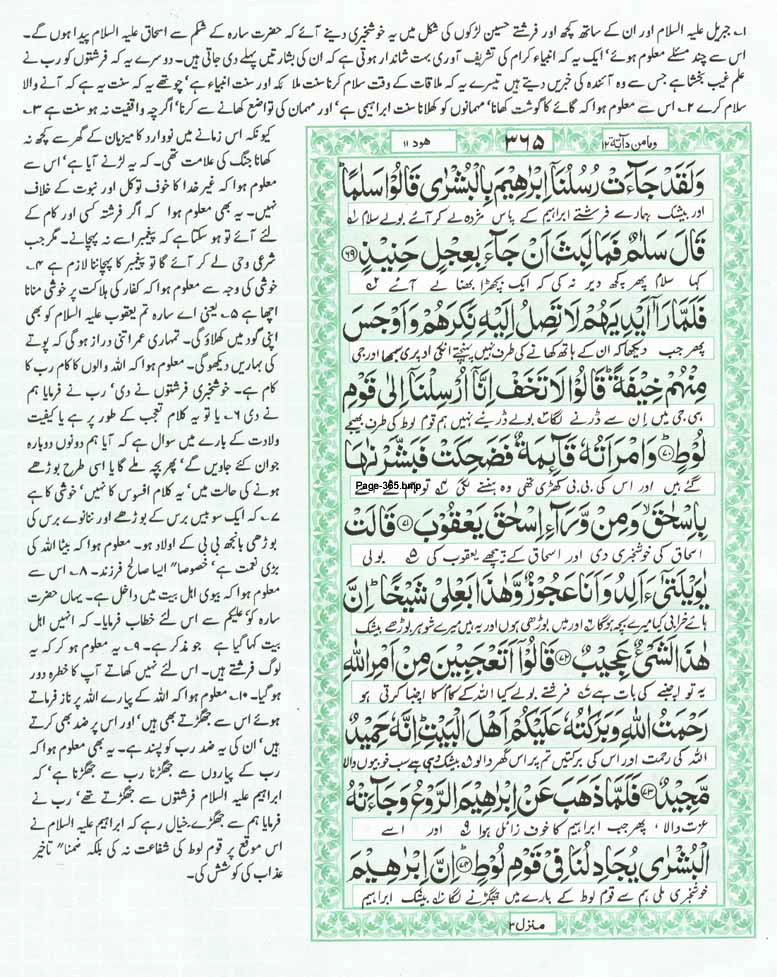 ۱؎ جبریل علیہ السلام اور ان کے ساتھ کچھ اور فرشتے حسین لڑکوں کی شکل میں یہ خوشخبری دینے آئے کہ حضرت سارہ کے شکم سے اسحاق علیہ السلام پیدا ہوں گے۔
اس سے چند مسئلے معلوم ہوئے' ایک یہ کہ انبیاء کرام کی تشریف آوری بہت شاندار ہوتی ہے کہ ان کی بشارتیں پہلے دی جاتی ہیں۔ دوسرے یہ کہ فرشتوں کو رب نے
علم غیب بخشا ہے جس سے وہ آئندہ کی خبریں دیتے ہیں تیسرے یہ کہ ملاقات کے وقت سلام کرنا سنت ملائکہ اور سنت انبیاء ہے' چوتھے یہ کہ سنت یہ ہے کہ آنے والا
سلام کرے ۲؎ اس سے معلوم ہوا کہ گائے کا گوشت کھانا' مہمانوں کو کھلانا سنت ابراہیمی ہے' اور مہمان کی تواضع کھانے سے کرنا' اگرچہ واقفیت نہ ہو سنت ہے ۳؎
کیونکہ اس زمانے میں نووارد کا میزبان کے گھر سے کچھ نہ
کھانا جنگ کی علامت تھی۔ کہ یہ لڑنے آیا ہے' اس سے
معلوم ہوا کہ غیر خدا کا خوف توکل اور نبوت کے خلاف
نہیں۔ یہ بھی معلوم ہوا کہ اگر فرشتہ کسی اور کام کے
لئے آئے تو ہو سکتا ہے کہ پیغمبر اسے نہ پہچانے۔ مگر جب
شرعی وحی لے کر آئے گا تو پیغمبر کا پہچاننا لازم ہے ۴؎
خوشی کی وجہ سے معلوم ہوا کہ کفار کی ہلاکت پر خوشی منانا
اچھا ہے ۵؎ یعنی اے سارہ تم یعقوب علیہ السلام کو بھی
اپنی گود میں کھلاؤ گی۔ تمہاری عمر اتنی دراز ہو گی کہ پوتے
کی بہاریں دیکھو گی۔ معلوم ہوا کہ اللہ والوں کا کام رب کا
کام ہے۔ خوشخبری فرشتوں نے دی' رب نے فرمایا ہم
نے دی ۶؎ یا تو یہ کلام تعجب کے طور پر ہے یا کیفیت
ولادت کے بارے میں سوال ہے کہ آیا ہم دونوں دوبارہ
جوان کئے جاویں گے' پھر بچہ ملے گا یا اسی طرح بوڑھے
ہونے کی حالت میں' یہ کلام افسوس کا نہیں' خوشی کا ہے
۷؎ کہ ایک سو بیس برس کے بوڑھے اور ننانوے برس کی
بوڑھی بانجھ بی بی کے اولاد ہو۔ معلوم ہوا کہ بیٹا اللہ کی
بڑی نعمت ہے' خصوصا" ایسا صالح فرزند۔ ۸؎ اس سے
معلوم ہوا کہ بیوی اہل بیت میں داخل ہے۔ یہاں حضرت
سارہ کو علیکم سے اس لئے خطاب فرمایا۔ کہ انہیں اہل
بیت کہا گیا ہے جو مذکر ہے۔ ۹؎ یہ معلوم ہو کر کہ یہ
لوگ فرشتے ہیں۔ اس لئے نہیں کھاتے آپ کا خطرہ دور
ہو گیا۔ ۱۰؎ معلوم ہوا کہ اللہ کے پیارے اللہ پر ناز فرماتے
ہوئے اس سے جھگڑتے بھی ہیں' اور اس پر ضد بھی کرتے
ہیں' ان کی یہ ضد رب کو پسند ہے۔ یہ بھی معلوم ہوا کہ
رب کے پیاروں سے جھگڑنا رب سے جھگڑنا ہے' کہ
ابراہیم علیہ السلام فرشتوں سے جھگڑتے تھے' رب نے
فرمایا ہم سے جھگڑے خیال رہے کہ ابراہیم علیہ السلام نے
اس موقع پر قوم لوط کی شفاعت نہ کی بلکہ ضمنا" تاخیر
عذاب کی کوشش کی۔
ومامن دآبة ۱۲ ۳۶۵ ھود ۱۱
وَلَقَدْ جَآءَتْ رُسُلُنَآ اِبْرٰهِیْمَ بِالْبُشْرٰی قَالُوْا سَلٰمًا
اور بیشک ہمارے فرشتے ابراہیم کے پاس مژدہ لے کر آئے بولے سلام
قَالَ سَلٰمٌ فَمَا لَبِثَ اَنْ جَآءَ بِعِجْلٍ حَنِیْذٍ ۶۹
کہا سلام پھر کچھ دیر نہ کی کہ ایک بچھڑا بھنا لے آئے
فَلَمَّا رَآٰ اَیْدِیَهُمْ لَا تَصِلُ اِلَیْهِ نَكِرَهُمْ وَاَوْجَسَ
پھر جب دیکھا کہ ان کے ہاتھ کھانے کی طرف نہیں پہنچتے انکو اوپری سمجھا اور جی
مِنْهُمْ خِیْفَةً ؕ قَالُوْا لَا تَخَفْ اِنَّآ اُرْسِلْنَآ اِلٰی قَوْمِ
ہی جی میں ان سے ڈرنے لگا بولے ڈریئے نہیں ہم قوم لوط کی طرف بھیجے
لُوْطٍ ۷۰ وَامْرَاَتُهٗ قَآئِمَةٌ فَضَحِكَتْ فَبَشَّرْنٰهَا
گئے ہیں اور اس کی بی بی کھڑی تھی وہ ہنسنے لگی تو ہم نے اسے
Page-365.bmp
بِاِسْحٰقَ ۙ وَمِنْ وَّرَآءِ اِسْحٰقَ یَعْقُوْبَ ۷۱ قَالَتْ
اسحاق کی خوشخبری دی اور اسحاق کے پیچھے یعقوب کی بولی
یٰوَیْلَتٰۤی ءَاَلِدُ وَاَنَا عَجُوْزٌ وَّهٰذَا بَعْلِیْ شَیْخًا ؕ اِنَّ
ہائے خرابی کیا میرے بچہ ہو گا اور میں بوڑھی ہوں اور یہ ہیں میرے شوہر بوڑھے بیشک
هٰذَا لَشَیْءٌ عَجِیْبٌ ۷۲ قَالُوْٓا اَتَعْجَبِیْنَ مِنْ اَمْرِ اللّٰهِ
یہ تو اچنبھے کی بات ہے فرشتے بولے کیا اللہ کے کام کا اچنبھا کرتی ہو
رَحْمَتُ اللّٰهِ وَبَرَكٰتُهٗ عَلَیْكُمْ اَهْلَ الْبَیْتِ ؕ اِنَّهٗ حَمِیْدٌ
اللہ کی رحمت اور اس کی برکتیں تم پر اس گھر والو بیشک وہی ہے سب خوبیوں والا
مَّجِیْدٌ ۷۳ فَلَمَّا ذَهَبَ عَنْ اِبْرٰهِیْمَ الرَّوْعُ وَجَآءَتْهُ
عزت والا، پھر جب ابراہیم کا خوف زائل ہوا اور اسے
الْبُشْرٰی یُجَادِلُنَا فِیْ قَوْمِ لُوْطٍ ۷۴ اِنَّ اِبْرٰهِیْمَ
خوشخبری ملی ہم سے قوم لوط کے بارے میں جھگڑنے لگا بیشک ابراہیم
منزل ۳